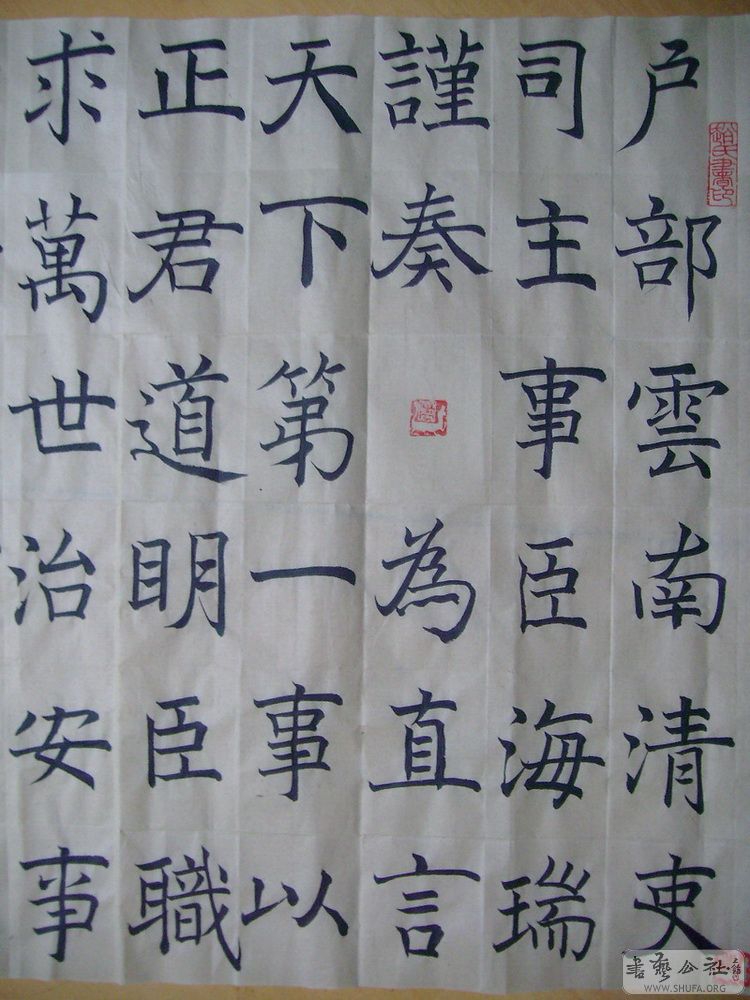 户部雲南清吏
司主事臣海瑞
謹奏為直言
天下第一事以
正君道明臣職
求萬世治安事
趙氏書印
書藝公社
WWW.SHUFA.ORG